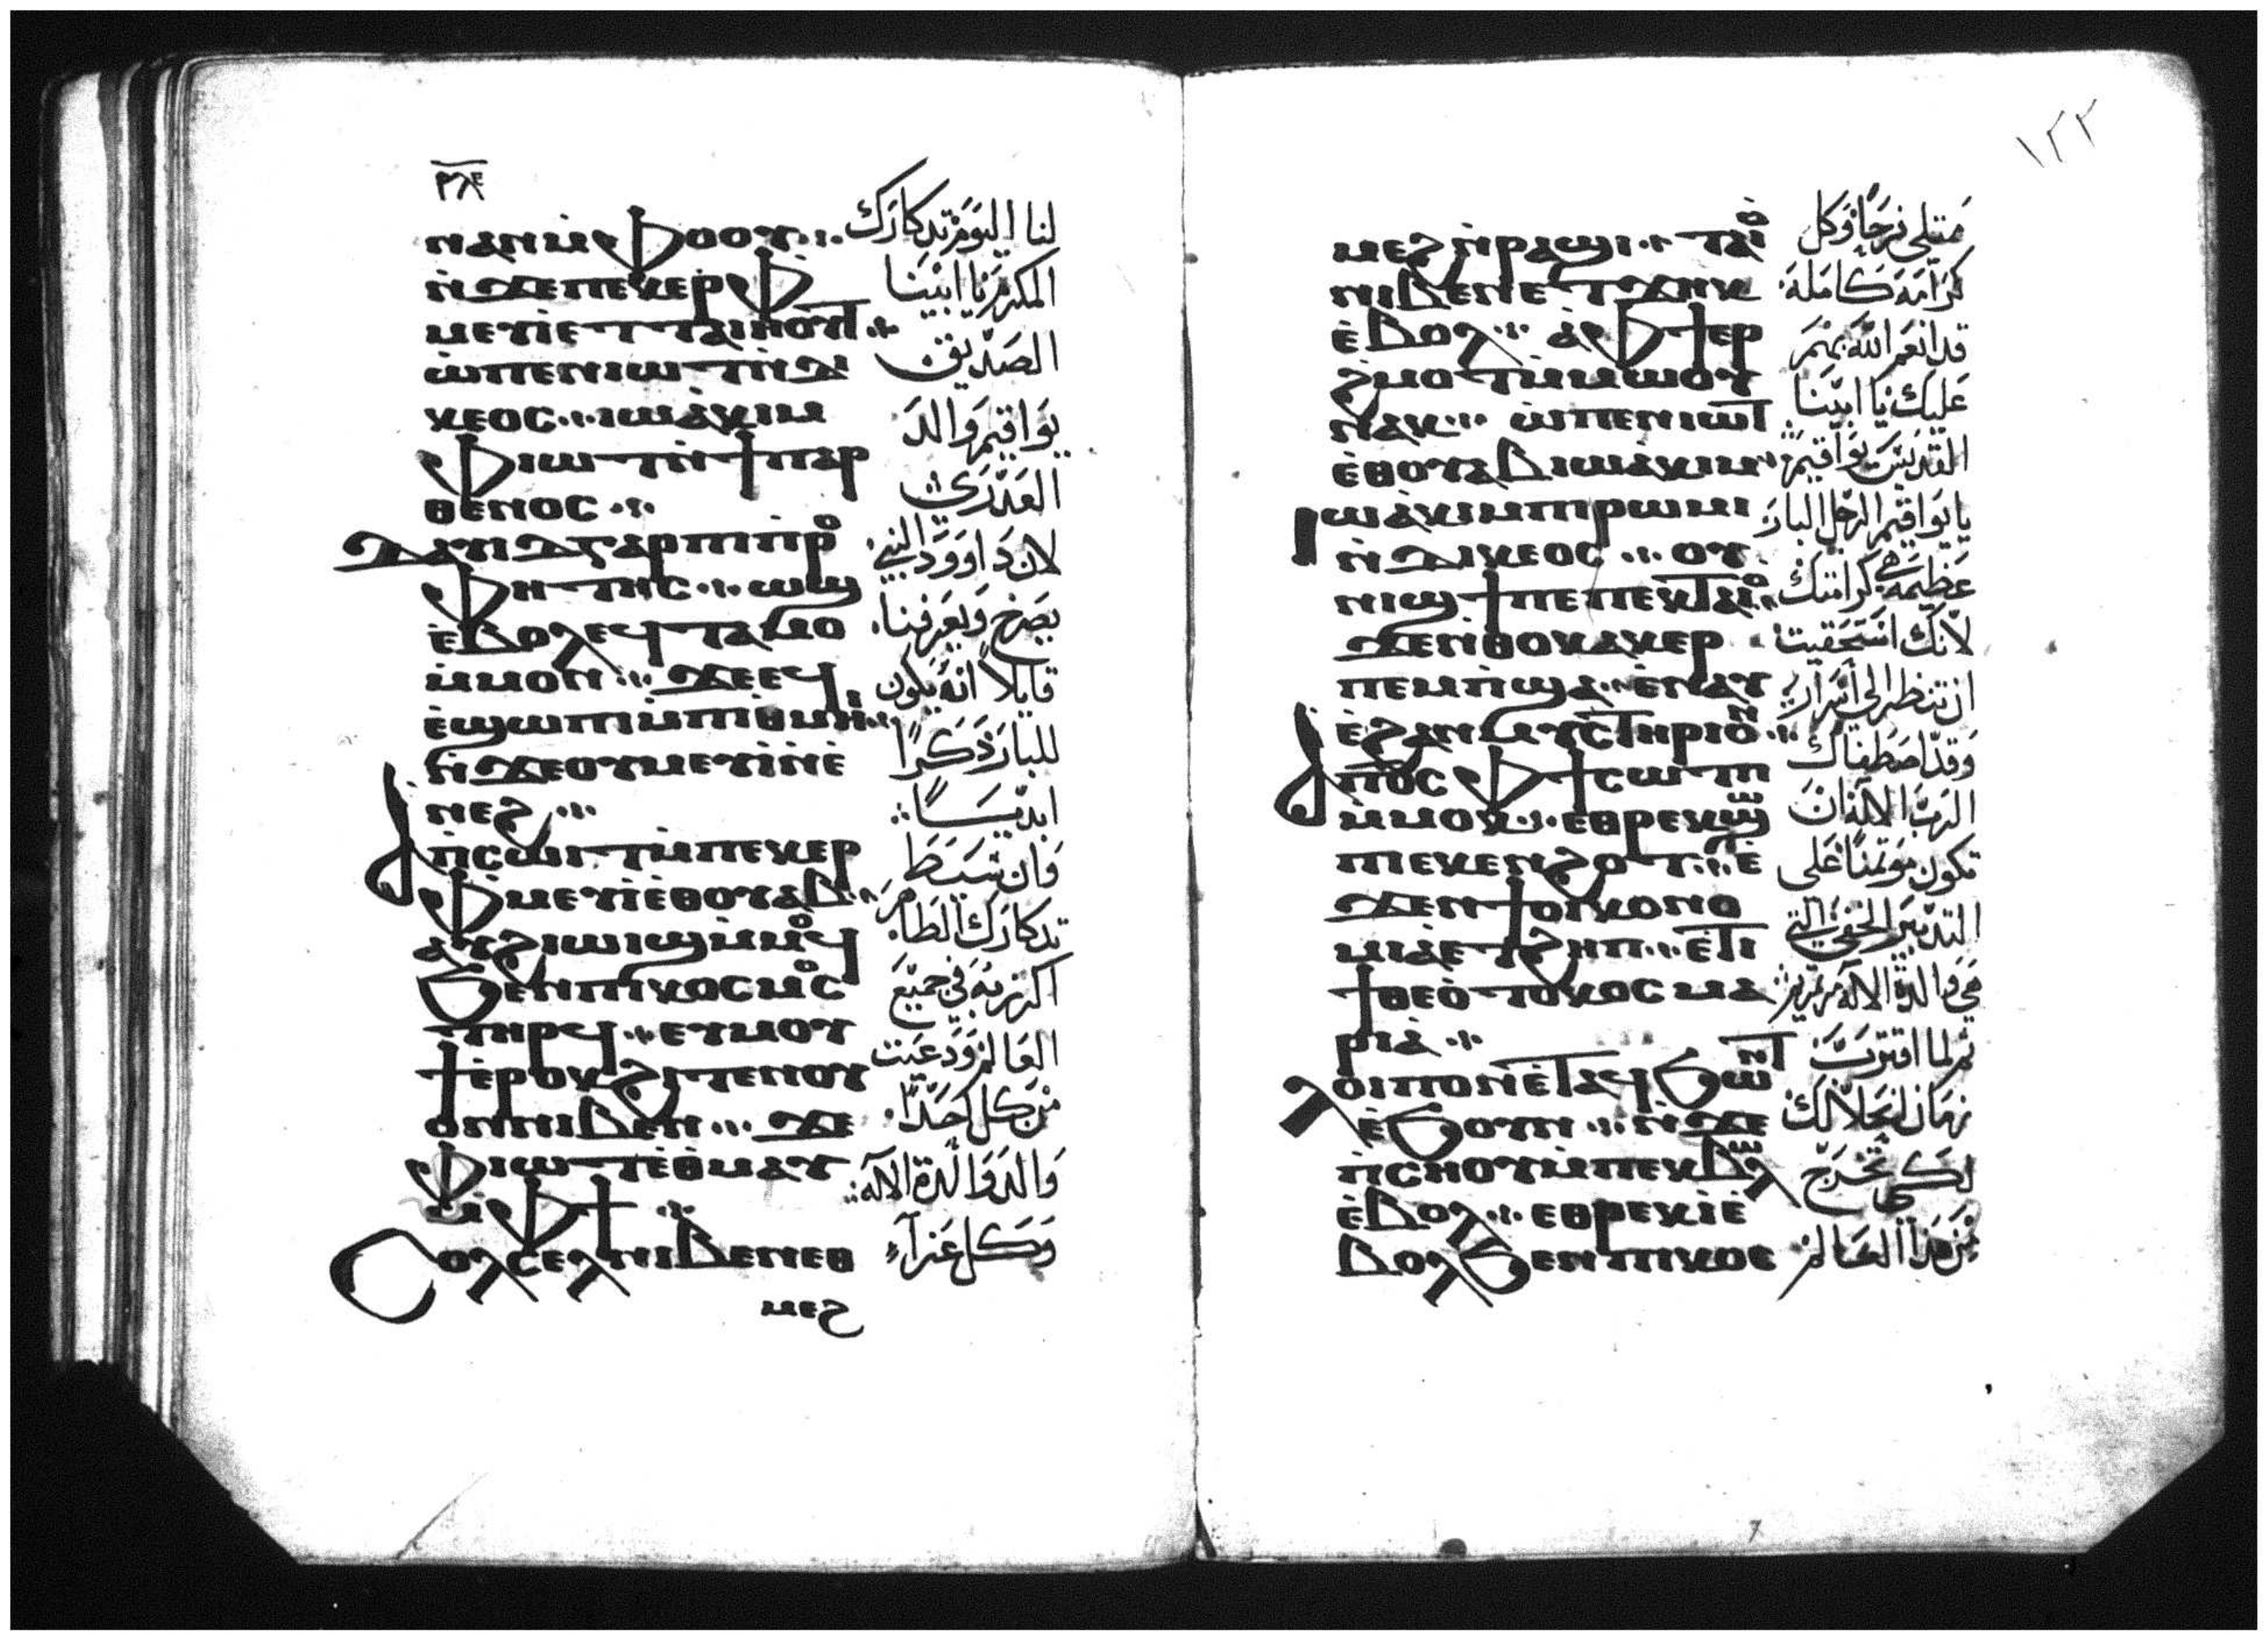 ⲛⲁⲛⲙ̀ⲫⲟⲟⲩ·:·
ⲛ̀ϫⲉⲡⲉⲕⲉⲣⲫ̀
ⲙⲉⲩⲓ̀ⲉⲧⲧⲁⲓⲏⲟⲩⲧ ·:·
ⲱ̀ⲡⲉⲛⲓⲱⲧⲛ̀ⲇⲓ
ⲕⲉⲟⲥ·:·ⲓⲱⲁ̀ⲕⲓⲙ
ⲫⲓⲱⲧⲛ̀ϯⲡⲁⲣ
ⲑⲉⲛⲟⲥ ·:·
ⲇⲁⲩⲓⲇⲅⲁⲣⲡⲓⲡⲣⲟ
ⲫⲏⲧⲏⲥ·:·ⲱϣ
ⲉ̀ⲃⲟⲗⲉϥⲧⲁⲙⲟ
ⲙ̀ⲙⲟⲛ ·:· ϫⲉⲉϥ
ⲉ̀ϣⲱⲡⲓⲙ̀ⲡⲓⲑⲙⲏⲓ·:·
ⲛ̀ϫⲉⲟⲩⲙⲉⲩⲓ̀ⲛ̀ⲉ̀
ⲛⲉϩ ·:·
ⲁⲡ̀ⲥⲱⲓⲧⲙ̀ⲡⲉⲕⲉⲣ
ⲫⲙⲉⲩⲓ̀ⲉⲑⲟⲩⲁⲃ·:·
ⲁⲩϩⲓⲱⲓϣⲙ̀ⲙⲟϥ
ϧⲉⲛⲡⲓⲕⲟⲥⲙⲟⲥ
ⲧⲏⲣϥ ·:· ⲉⲩⲙⲟⲩ
ϯⲉ̀ⲣⲟⲕϩⲓⲧⲉⲛⲟⲩ
ⲟⲛⲛⲓⲃⲉⲛ ·:· ϫⲉ
ⲫⲓⲱⲧⲉ̀ⲑⲙⲁⲩ
ⲙ̀ⲫϯ ·:·
ⲥⲟⲗⲥⲉⲗⲛⲓⲃⲉⲛⲉⲑ
ⲙⲉϩ
لنا اليوم تدكارك
المكرم يا ابينا
الصديق
يواقيم والد
العدرى
لان داوود النبي
يصرخ ويعرفنا
قايلا انه يكون
للبار ذكرا
ابديـا
فان شيط
تدكارك الطاهر
اكرز به في جميع
العالم ودعيت
من كل احد
والد والدة الاله
وكل عزآء
١٢٢
ⲙⲉϩⲛ̀ⲣⲁϣⲓ·:·ⲧⲁⲓⲟ
ⲛⲓⲃⲉⲛⲉⲧϫⲏⲕ
ⲉ̀ⲃⲟⲗ ·:· ⲁ̀ⲫϯⲉⲣ
ϩⲙⲟⲧⲙ̀ⲙⲱⲟⲩ
ⲛⲁⲕ·:· ⲱ̀ⲡⲉⲛⲓⲱⲧ
ⲉⲑⲟⲩⲁⲃⲓⲱⲁ̀ⲕⲓⲙ·:·
ⲓⲱⲁ̀ⲕⲓⲙⲡⲓⲣⲱⲙⲓ
ⲛ̀ⲇⲓⲕⲉⲟⲥ ·:· ⲟⲩ
ⲛⲓϣϯⲡⲉⲡⲉⲕⲧⲁⲓⲟ·:·
ϫⲉⲛ̀ⲑⲟⲕⲁⲕⲉⲣ
ⲡⲉⲙⲡ̀ϣⲁ·:·ⲉ̀ⲛⲁⲩ
ⲉ̀ϩⲁⲛⲙⲩⲥⲧⲏⲣⲓⲟⲛ·:·
ⲁⲡⲟ̅ⲥ̅ⲫϯⲥⲱⲧⲡ
ⲙ̀ⲙⲟⲕ·:·ⲉⲑⲣⲉⲕϣⲱ
ⲡⲓⲉⲕⲉⲛϩⲟⲧ·:·ⲉ̀
ϫⲉⲛϯⲟⲓⲕⲟⲛⲟ
ⲙⲓⲁⲉⲧϩⲏⲡ·:·ⲉ̀ⲧⲓ
ϯⲑⲉⲟ̀ⲧⲟⲕⲟⲥⲙⲁ
ⲣⲓⲁ̀ ·:·
ⲗⲟⲓⲡⲟⲛⲉ̀ⲧⲁϥϧⲱⲛⲧ
ⲉ̀ϧⲟⲩⲛ ·:· ⲛ̀ϫⲉ
ⲡ̀ⲥⲏⲟⲩⲙ̀ⲡⲉⲕⲃⲱⲗ
ⲉ̀ⲃⲟⲗ·:·ⲉⲑⲣⲉⲕⲓ̀ⲉ̀
ⲃⲟⲗϧⲉⲛⲡⲓⲕⲟⲥ
ممتلي فرحا وكل
كرامة كاملة
قد انعم الله بهم
عليك يا ابينا
القديس يواقيم
يا يواقيم الرجل البار
عظيمة هي كرامتك
لانك استحقيت
ان تنظر الى اسرار
وقد اصطفاك
الرب الاله ان
تكون موتمنا على
التدبير الخفي التي
هي والدة الاله مريم
ثم لما اقترب
زمان انحلالك
لكي تخرج
من هذا العالم